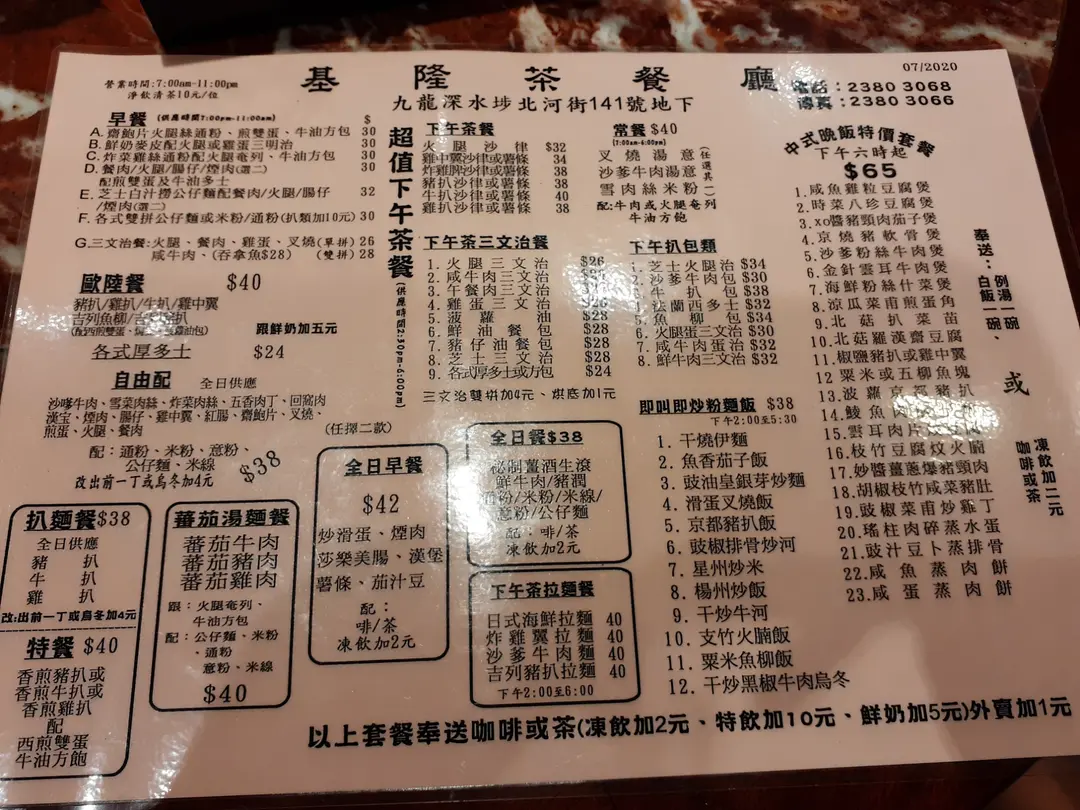 營業時間:7:00am-11:00pm
淨飲清茶10元/位
基隆茶餐廳
07/2020
電話:2380 3068
傳真:2380 3066
九龍深水埗北河街141號地下
早餐 (供應時間7:00pm-11:00am) $
A.齋鮑片火腿絲通粉、煎雙蛋、牛油方包 30
B.鮮奶麥皮配火腿或雞蛋三明治 30
C.炸菜雞絲通粉配火腿奄列、牛油方包 30
D.餐肉/火腿/腸仔/煙肉(選二)
配煎雙蛋及牛油多士 30
E.芝士白汁撈公仔麵配餐肉/火腿/腸仔
/煙肉(選二) 32
F.各式雙拼公仔麵或米粉/通粉(扒類加10元) 30
G.三文治餐:火腿、餐肉、雞蛋、叉燒(單拼) 26
咸牛肉、(吞拿魚$28) (雙拼) 28
歐陸餐 $40
豬扒/雞扒/牛扒/雞中翼
吉列魚柳/
跟鮮奶加五元
各式厚多士 $24
自由配 全日供應
沙嗲牛肉、雪菜肉絲、炸菜肉絲、五香肉丁、回窩肉
漢宝、煙肉、腸仔、雞中翼、紅腸、齋鮑片、叉燒、
煎蛋、火腿、餐肉
(任擇二款)
配：通粉、米粉、意粉、
公仔麵、米線
改出前一丁或烏冬加4元
$38
扒麵餐$38
全日供應
豬扒
牛扒
雞扒
改:出前一丁或烏冬加4元
特餐 $40
香煎豬扒或
香煎牛扒或
香煎雞扒
配
西煎雙蛋
牛油方飽
蕃茄湯麵餐
蕃茄牛肉
蕃茄豬肉
蕃茄雞肉
跟：火腿奄列、
牛油方包
配：公仔麵、米粉
、通粉
意粉、米線
$40
超值下午茶餐
(供應時間2:30pm-6:00pm)
下午茶餐
火腿沙律 $32
雞中翼沙律或薯條 34
炸雞脾沙律或薯條 38
豬扒沙律或薯條 38
牛扒沙律或薯條 40
雞扒沙律或薯條 38
常餐$40
(7:00am-6:00pm)
叉燒湯意
沙爹牛肉湯意
雪肉絲米粉
(任選其一)
配:牛肉或火腿奄列
牛油方飽
下午茶三文治餐
1.火腿三文治 $26
2.咸牛肉三文治
3.午餐肉三文治
4.雞蛋三文治
5.菠蘿油 $28
6.鮮油餐包 $28
7.豬仔油餐包 $28
8.芝士三文治 $28
9.各式厚多士或方包 $24
三文治雙拼加4元、烘底加1元
下午扒包類
1.芝士火腿治 $34
2.沙爹牛肉包 $30
3.牛扒包 $38
4.法蘭西多士 $32
5.魚柳包 $34
6.火腿蛋三文治 $30
7.咸牛肉蛋治 $32
8.鮮牛肉三文治 $32
全日早餐
$42
炒滑蛋、煙肉
莎樂美腸、漢堡
薯條、茄汁豆
配：
啡/茶
凍飲加2元
全日餐$38
秘制薑酒生滾
鮮牛肉/豬潤
粉/米粉/米線/
意粉/公仔麵
配：啡/茶
凍飲加2元
下午茶拉麵餐
日式海鮮拉麵 40
炸雞翼拉麵 40
沙爹牛肉麵 40
吉列豬扒拉麵 40
下午2:00至6:00
即叫即炒粉麵飯 $38
下午2:00至5:30
1. 干燒伊麵
2. 魚香茄子飯
3. 豉油皇銀芽炒麵
4. 滑蛋叉燒飯
5. 京都豬扒飯
6. 豉椒排骨炒河
7. 星州炒米
8. 楊州炒飯
9. 干炒牛河
10. 支竹火腩飯
11. 粟米魚柳飯
12. 干炒黑椒牛肉烏冬
中式晚飯特價套餐
下午六時起
$65
1.咸魚雞粒豆腐煲
2.時菜八珍豆腐煲
3.xo醬豬頸肉茄子煲
4.京燒豬軟骨煲
5.沙爹粉絲牛肉煲
6.金針雲耳牛肉煲
7.海鮮粉絲什菜煲
8.涼瓜菜甫煎蛋角
9.北菇扒菜苗
10.北菇羅漢齋豆腐
11.椒鹽豬扒或雞中翼
12 粟米或五柳魚塊
13.波蘿京都豬扒
14.鯪魚肉
15.雲耳肉片
16.枝竹豆腐炆火腩
17.妙醬薑蔥爆豬頸肉
18.胡椒枝竹咸菜豬肚
19.豉椒菜甫炒雞丁
20.瑤柱肉碎蒸水蛋
21.豉汁豆卜蒸排骨
22.咸魚蒸肉餅
23.咸蛋蒸肉餅
奉送：例湯一碗、
白飯一碗
或
凍飲加二元
咖啡或茶
以上套餐奉送咖啡或茶(凍飲加2元、特飲加10元、鮮奶加5元)外賣加1元